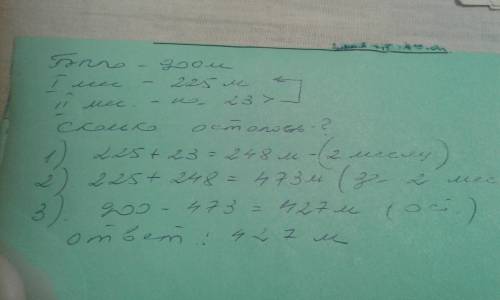 Было - 900 м
I мес - 225 м
II мес. - на 23 >
Сколько осталось?
1) 225 + 23 = 248 м - (2 месяц)
2) 225 + 248 = 473 м (за 2 мес
3). 900 - 473 = 427 м (ост.)
ответ: 427 м